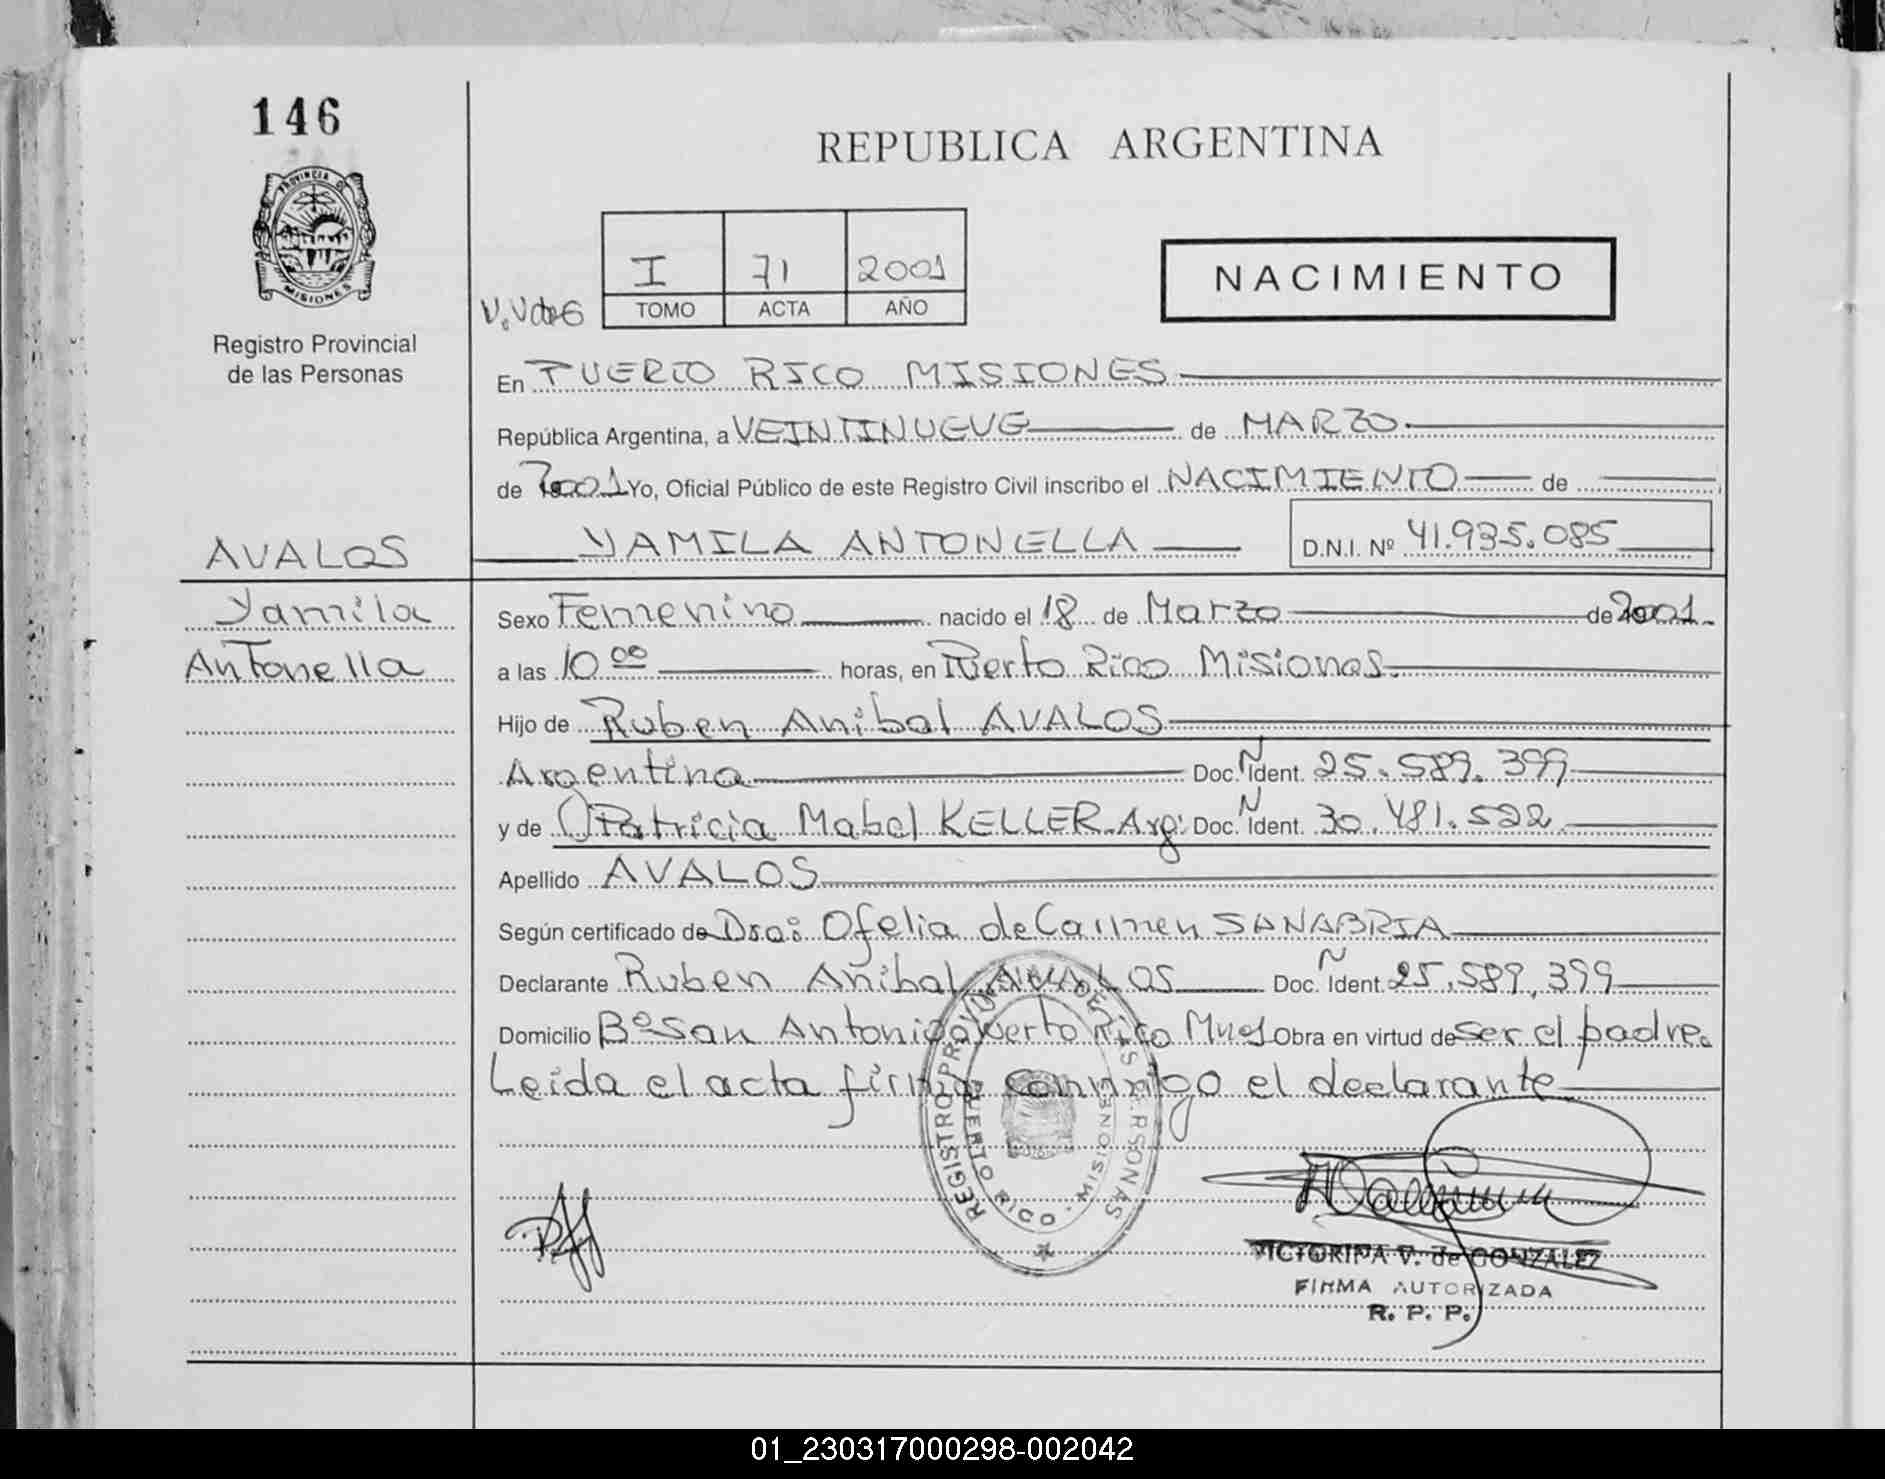 146
REPUBLICA ARGENTINA
PROVINCIA DE
MISIONES
Registro Provincial
de las Personas
I 71 2001
TOMO ACTA AÑO
NACIMIENTO
En PUERTO RICO MISIONES
República Argentina, a VEINTINUEVE de MARZO
de 2001 Yo, Oficial Público de este Registro Civil inscribo el NACIMIENTO de
AVALOS YAMILA ANTONELLA D.N.I. Nº 41.935.085
Yamila Sexo Femenino nacido el 18 de Marzo de 2001.
Antonella a las 10 00 horas, en Puerto Rico Misiones.
Hijo de Ruben Anibal AVALOS
Argentina Doc. N Ident. 25.589.399
y de Patricia Mabel KELLER Arg. Doc. N Ident. 30.481.522
Apellido AVALOS
Según certificado de Dra: Ofelia de Carmen SANABRIA
Declarante Ruben Anibal AVALOS Doc. N Ident. 25.589.399
Domicilio Bº San Antonio Puerto Rico Mnes Obra en virtud de ser el padre.
Leida el acta firma conmigo el declarante
REGISTRO PROVINCIAL DE LAS PERSONAS
PUERTO RICO - MISIONES
VICTORINA V. de GONZALEZ
FIRMA AUTORIZADA
R. P. P.
01_230317000298-002042